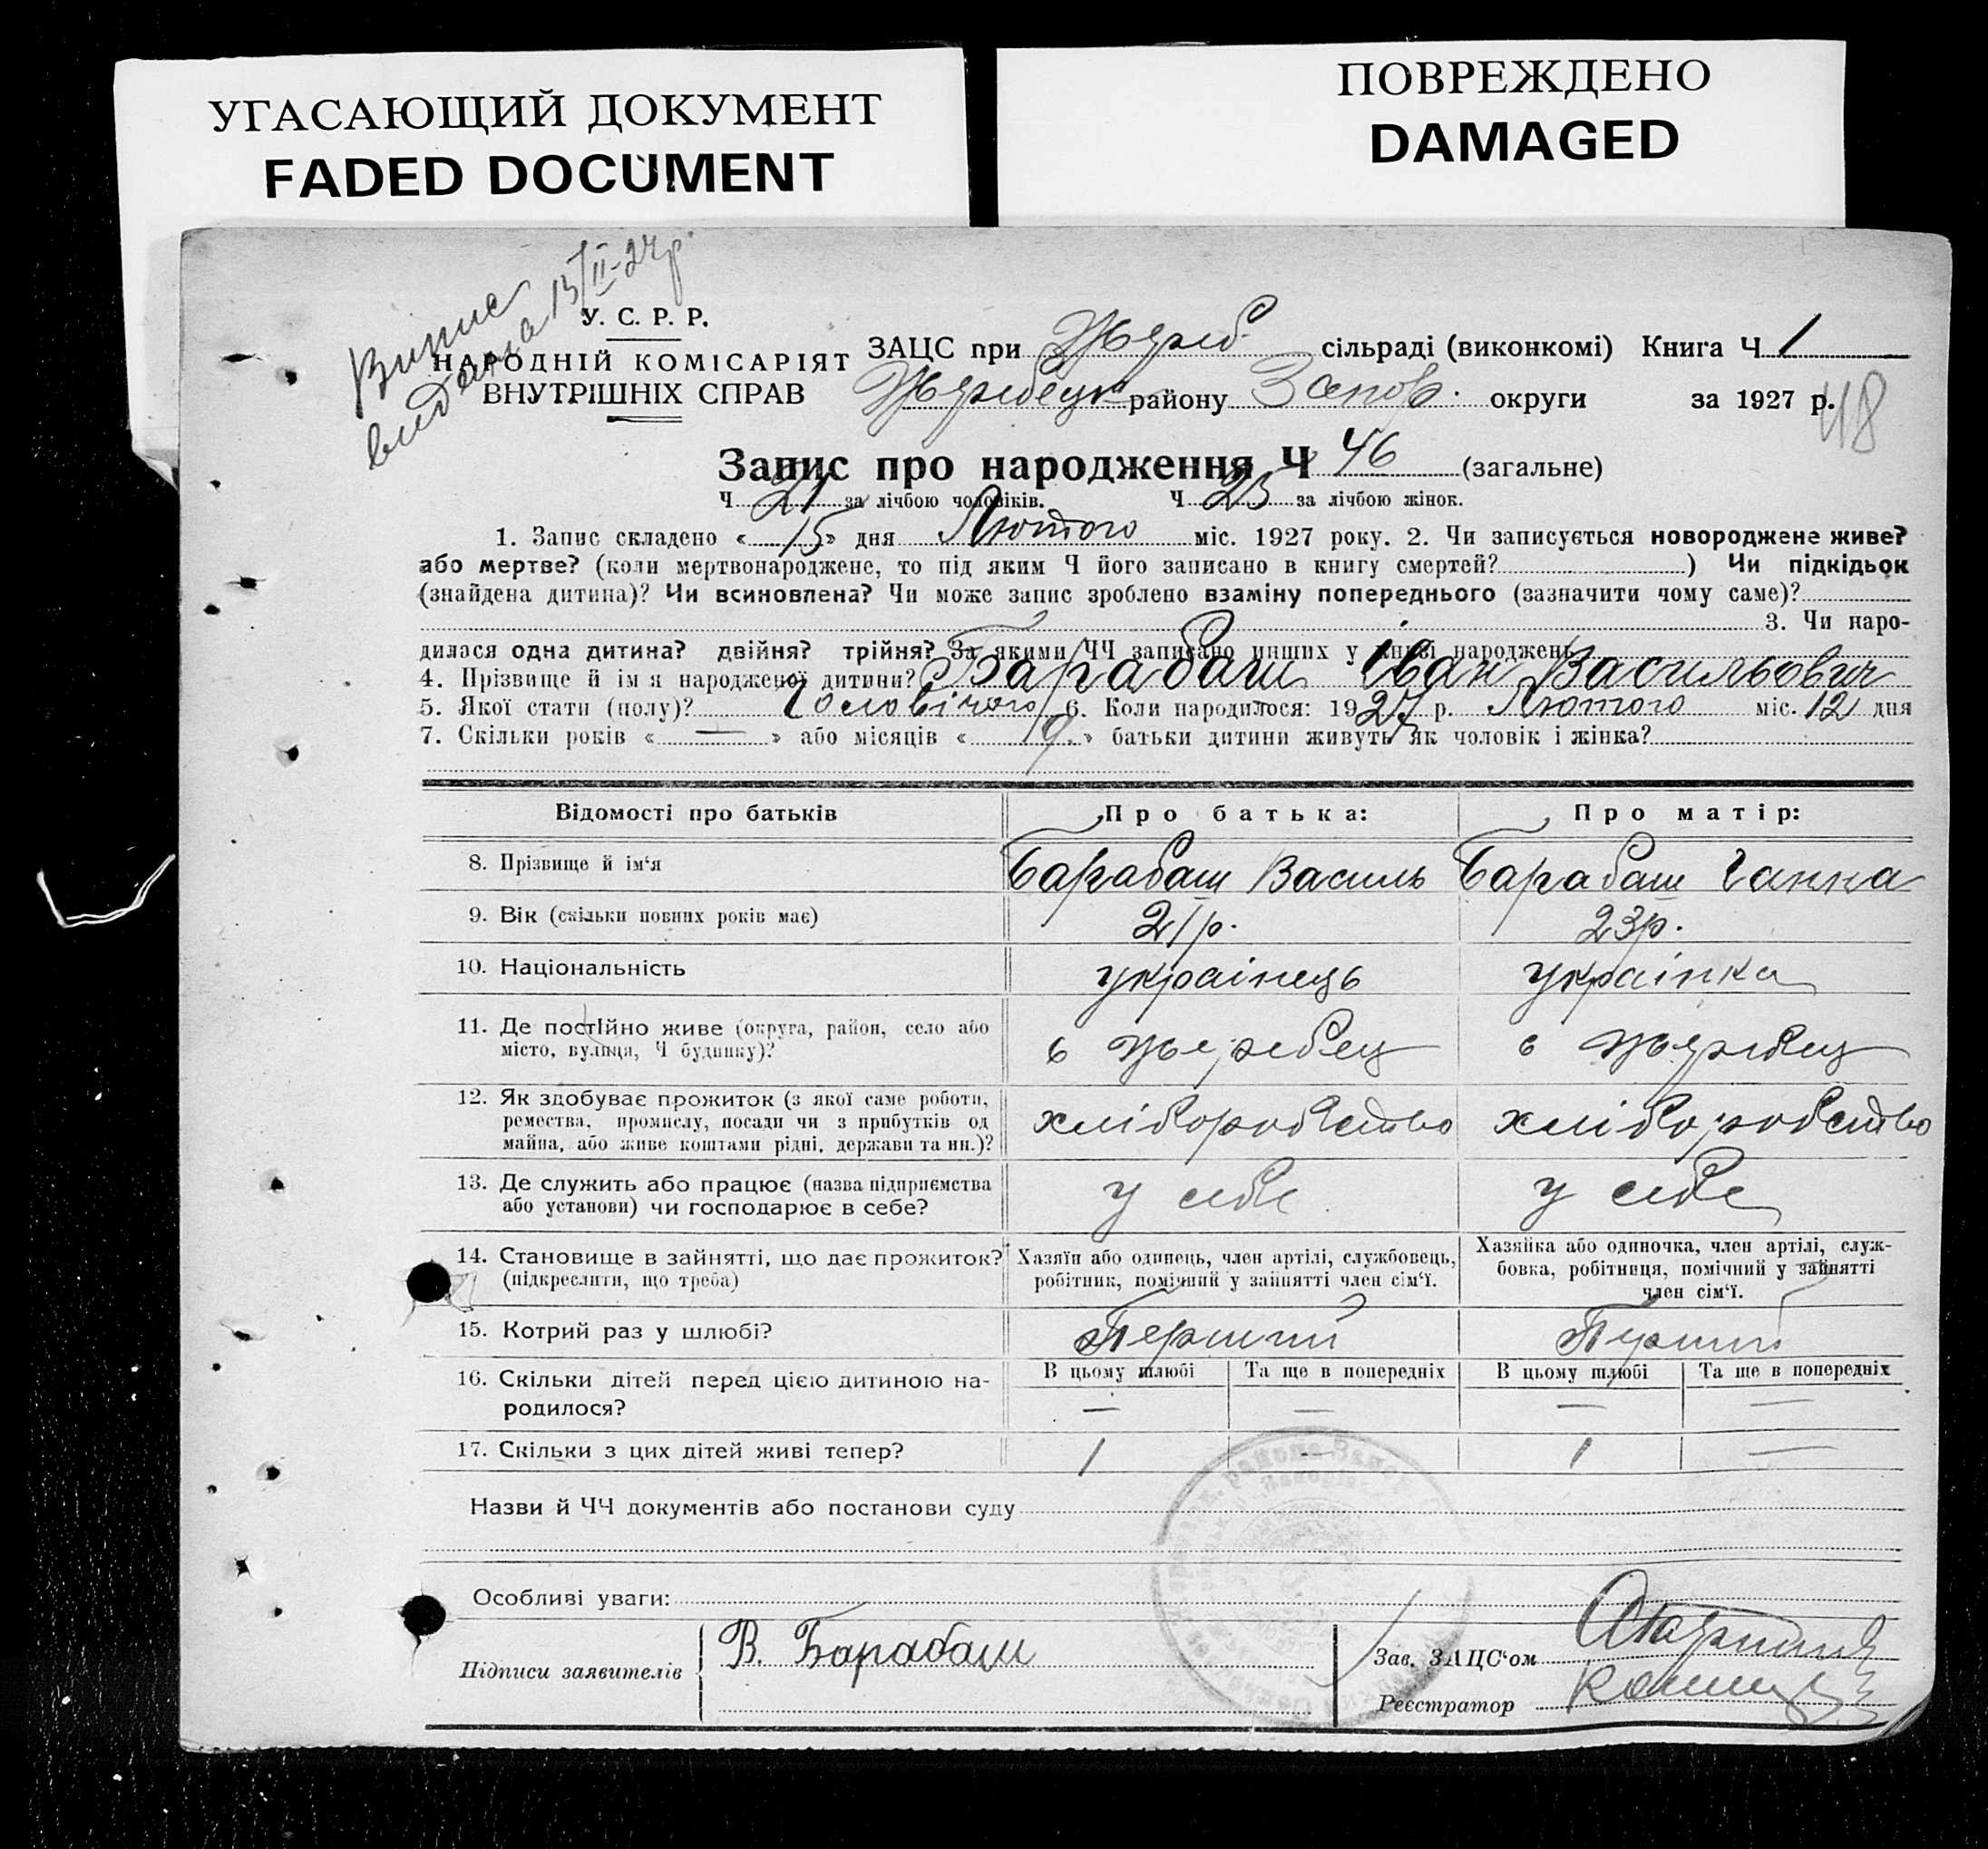 УГАСАЮЩИЙ ДОКУМЕНТ
FADED DOCUMENT
ПОВРЕЖДЕНО
DAMAGED
Випис
видана 13/II-27р.
У. С. Р. Р.
НАРОДНІЙ КОМІСАРІЯТ
ВНУТРІШНІХ СПРАВ
ЗАЦС при Жереб. сільраді (виконкомі) Книга Ч 1
Жеребецк району Запор. округи за 1927 р.
48
Запис про народження Ч 46 (загальне)
Ч 21 за лічбою чоловіків. Ч 25 за лічбою жінок.
1. Запис складено « 15 » дня Лютого міс. 1927 року. 2. Чи записується новороджене живе?
або мертве? (коли мертвонароджене, то під яким Ч його записано в книгу смертей? ) Чи підкідьок
(знайдена дитина)? Чи всиновлена? Чи може запис зроблено взаміну попереднього (зазначити чому саме)?
3. Чи наро-
дилася одна дитина? двійня? трійня? За якими ЧЧ записано инших у книзі народжень
4. Прізвище й ім'я народженої дитини? Барабаш Іван Васильович
5. Якої стати (полу)? Чоловічого 6. Коли народилося: 1927 р. Лютого міс. 12 дня
7. Скільки років « — » або місяців « 19 » батьки дитини живуть як чоловік і жінка?
Відомості про батьків Про батька: Про матір:
8. Прізвище й ім'я Барабаш Василь Барабаш Ганна
9. Вік (скільки повних років має) 21р. 23р.
10. Національність українець українка
11. Де постійно живе (округа, район, село або
місто, вулиця, Ч будинку)? с Жеребец с Жеребец
12. Як здобуває прожиток (з якої саме роботи,
ремества, промислу, посади чи з прибутків од
майна, або живе коштами рідні, держави та ин.)? хліборобство хліборобство
13. Де служить або працює (назва підприємства
або установи) чи господарює в себе? у себе у себе
14. Становище в зайнятті, що дає прожиток?
(підкреслити, що треба)
Хазяїн або одинець, член артілі, службовець,
робітник, помічний у зайнятті член сім'ї.
Хазяйка або одиночка, член артілі, служ-
бовка, робітниця, помічний у зайнятті
член сім'ї.
15. Котрий раз у шлюбі? Перший Перший
16. Скільки дітей перед цією дитиною на-
родилося?
В цьому шлюбі Та ще в попередніх В цьому шлюбі Та ще в попередніх
— — — —
17. Скільки з цих дітей живі тепер? 1 — 1 —
Назви й ЧЧ документів або постанови суду
Особливі уваги:
Підписи заявителів В. Барабаш
Зав. ЗАЦС'ом
Реєстратор